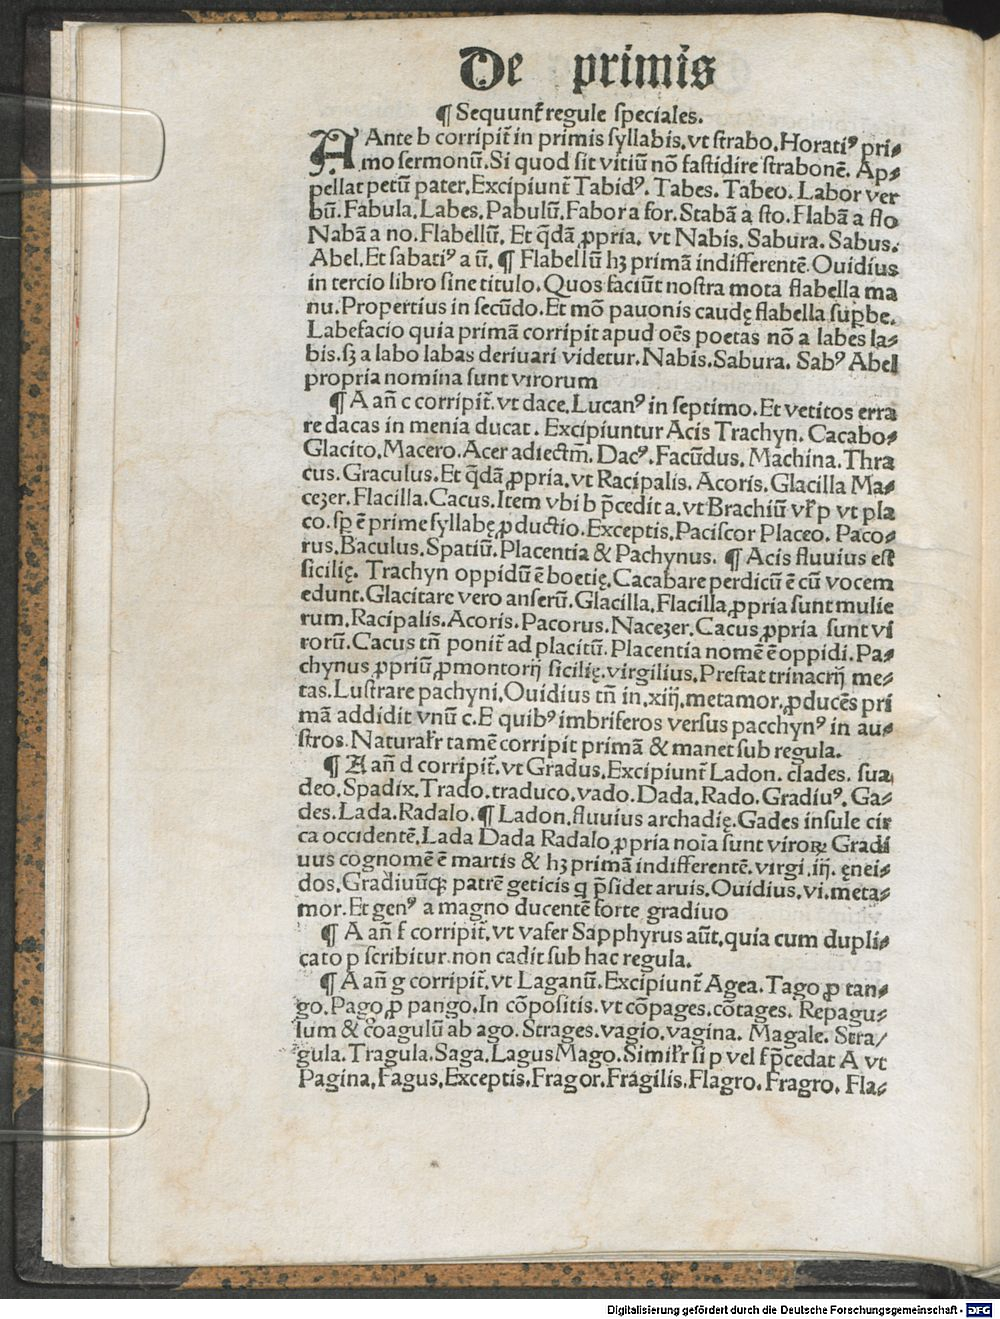 De primis
¶ Sequunt̃ regule speciales.
A Ante b corripit̃ in primis syllabis. vt strabo. Horatiꝰ pri⸗
mo sermonũ. Si quod sit vitiũ nõ fastidire strabonẽ. Ap⸗
pellat petũ pater. Excipiunt̃ Tabidꝰ. Tabes. Tabeo. Labor ver
bũ. Fabula. Labes. Pabulũ. Fabor a for. Stabã a sto. Flabã a flo
Nabã a no. Flabellũ. Et q̃dã ꝓpria. vt Nabis. Sabura. Sabus.
Abel. Et sabatiꝰ a ũ. ¶ Flabellũ hꝫ primã indifferentẽ. Ouidius
in tercio libro sine titulo. Quos faciũt nostra mota flabella ma
nu. Propertius in secũdo. Et mõ pauonis caudę flabella supꝑbe.
Labefacio quia primã corripit apud oẽs poetas nõ a labes la⸗
bis. sꝫ a labo labas deriuari videtur. Nabis. Sabura. Sabꝰ Abel
propria nomina sunt virorum
¶ A añ c corripit̃. vt dace. Lucanꝰ in septimo. Et vetitos erra
re dacas in menia ducat. Excipiuntur Acis Trachyn. Cacabo⸗
Glacito. Macero. Acer adiectm̃. Dacꝰ. Facũdus. Machina. Thra
cus. Graculus. Et q̃dã ꝓpria. vt Racipalis. Acoris. Glacilla Ma⸗
cezer. Flacilla. Cacus. Item vbi b p̃cedit a. vt Brachiũ vl̃ p vt pla
co. sꝑ ẽ prime syllabę ꝓductio. Exceptis. Paciscor Placeo. Paco⸗
rus. Baculus. Spatiũ. Placentia & Pachynus. ¶ Acis fluuius est
sicilię. Trachyn oppidũ ẽ boetię. Cacabare perdicũ ẽ cũ vocem
edunt. Glacitare vero anserũ. Glacilla. Flacilla ꝓpria sunt mulie
rum. Racipalis. Acoris. Pacorus. Nacezer. Cacus ꝓpria sunt vi
rorũ. Cacus tñ ponit̃ ad placitũ. Placentia nomẽ ẽ oppidi. Pa⸗
chynus ꝓpriũ ꝓmontorij sicilię. virgilius. Prestat trinacrij me⸗
tas. Lustrare pachyni. Ouidius tñ in. xiij. metamor. ꝓducẽs pri
mã addidit vnũ c. E quibꝰ imbriferos versus pacchynꝰ in au⸗
stros. Natural̃r tamẽ corripit primã & manet sub regula.
¶ A añ d corripit̃. vt Gradus. Excipiunt̃ Ladon. clades. sua
deo. Spadix. Trado. traduco. vado. Dada. Rado. Gradiuꝰ. Ga⸗
des. Lada. Radalo. ¶ Ladon. fluuius archadię. Gades insule cir
ca occidentẽ. Lada Dada Radalo ꝓpria noĩa sunt viroꝝ Gradi
uus cognomẽ ẽ martis & hꝫ primã indifferentẽ. virgi. iij. ęnei⸗
dos. Gradiuũqꝫ patrẽ geticis q p̃sidet aruis. Ouidius. vi. meta⸗
mor. Et genꝰ a magno ducentẽ forte gradiuo
¶ A añ f corripit̃. vt vafer Sapphyrus aũt. quia cum dupli⸗
cato p scribitur non cadit sub hac regula.
¶ A añ g corripit̃. vt Laganũ. Excipiunt̃ Agea. Tago ꝓ tan⸗
go. Pago ꝓ pango. In cõpositis. vt cõpages. cõtages. Repagu⸗
lum & cõagulũ ab ago. Strages. vagio. vagina. Magale. Stra/
gula. Tragula. Saga. Lagus Mago. Simil̃r si p vel f p̃cedat A vt
Pagina. Fagus. Exceptis. Fragor. Fragilis. Flagro. Fragro. Fla⸗
Digitalisierung gefördert durch die Deutsche Forschungsgemeinschaft - DFG